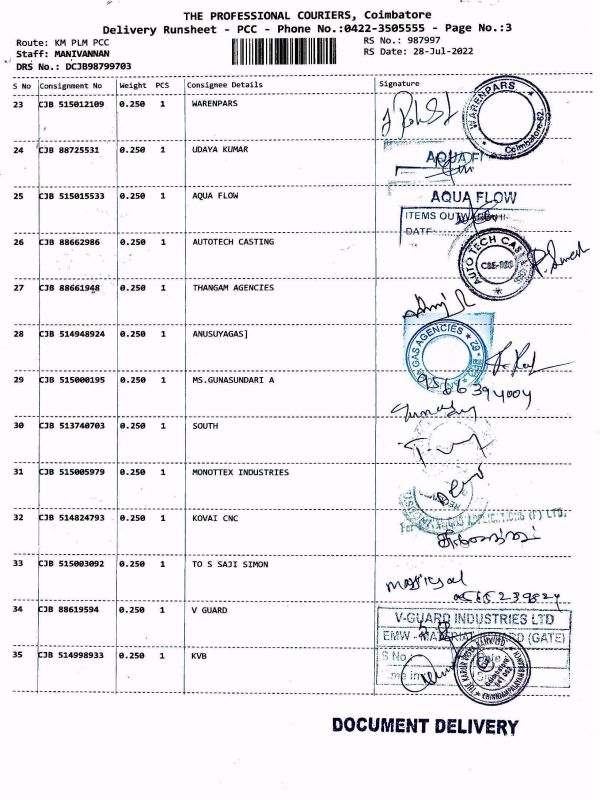 THE PROFESSIONAL COURIERS, Coimbatore
Delivery Runsheet - PCC - Phone No.:0422-3505555 - Page No.:3
Route: KM PLM PCC RS No.: 987997
Staff: MANIVANNAN RS Date: 28-Jul-2022
DRS No.: DCJB98799703
S No Consignment No Weight PCS Consignee Details Signature
23 CJB 515012109 0.250 1 WARENPARS
WARENPARS Coimbatore-62.
24 CJB 88725531 0.250 1 UDAYA KUMAR
AQUA FL
25 CJB 515015533 0.250 1 AQUA FLOW
AQUA FLOW
ITEMS OUTWARD
DATE
26 CJB 88662986 0.250 1 AUTOTECH CASTING
AUTO TECH CAS
27 CJB 88661948 0.250 1 THANGAM AGENCIES
28 CJB 514948924 0.250 1 ANUSUYAGAS]
GAS AGENCIES
29 CJB 515000195 0.250 1 MS.GUNASUNDARI A
9566394004
30 CJB 513740703 0.250 1 SOUTH
31 CJB 515005979 0.250 1 MONOTTEX INDUSTRIES
32 CJB 514824793 0.250 1 KOVAI CNC
(P) LTD.
33 CJB 515003092 0.250 1 TO S SAJI SIMON
34 CJB 88619594 0.250 1 V GUARD
V-GUARD INDUSTRIES LTD
EMW - MATERIAL (GATE)
35 CJB 514998933 0.250 1 KVB
S No
DOCUMENT DELIVERY